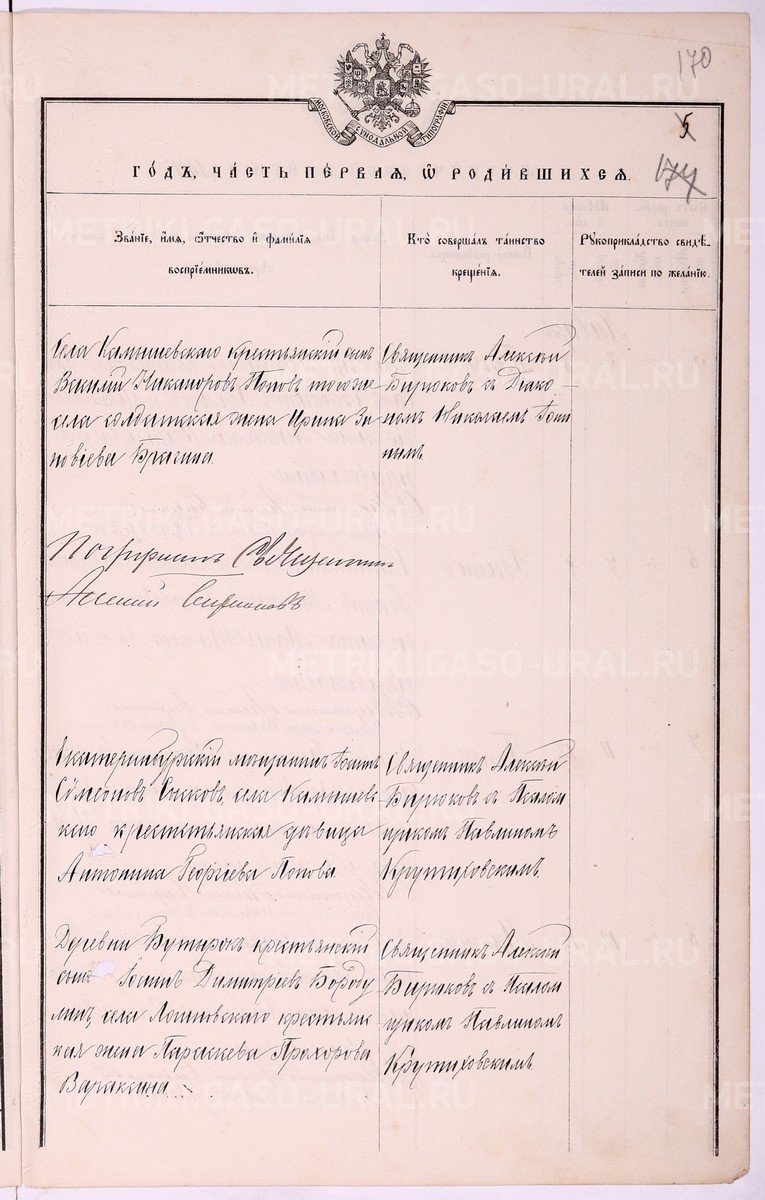 170
5
174
МОСКОВСКОЙ СѴНОДАЛЬНОЙ ТИПОГРАФІИ
ГО́ДЪ, ЧА́СТЬ ПЕ́РВАЯ, Ѿ РОДИ́ВШИХСЯ.
Зва́ніе, и́мя, ѻ҆́тчество и҆ фами́лія
воспріе́мниковъ.
Кто̀ соверша́лъ та́инство
креще́нія.
Рꙋкоприкла́дство свидѣ́-
телей за́писи по жела́нію.
Села Камышевскаго крестьянскій сынъ
Василій Никаноровъ Поповъ тогоже
села солдатская жена Ирина Зи
новіева Брагина.
Священникъ Алексѣй
Бирюковъ съ Діако-
номъ Николаемъ Іони
нымъ
Священникъ
Алексій Бирюковъ
Екатеринбургскій мѣщанинъ Іоаннъ
Сѵмеоновъ села Камышев
скаго крестьянская дѣвица
Антонина Георгіева Попова
Священникъ Алексѣй
Бирюковъ съ Псалом
щикомъ Павлиномъ
Крутиховскимъ.
Деревни Бутырокъ крестьянскій
сынъ Іоаннъ Димитріевъ Бороду
линъ, села Логиновскаго крестьянс
кая жена Параскева Прохорова
Вараксина.
Священникъ Алексѣй
Бирюковъ съ Псалом
щикомъ Павлиномъ
Крутиховскимъ.
METRIKI.GASO-URAL.RU